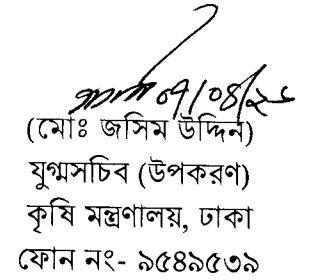 ০৭/০৪/২৬
(মোঃ জসিম উদ্দিন)
যুগ্মসচিব (উপকরণ)
কৃষি মন্ত্রণালয়, ঢাকা
ফোন নং- ৯৫৪৯৫৩৯